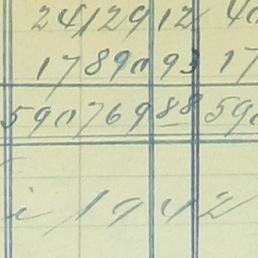 24129 12 40
17890 93 17
590769 88 590
i 1942